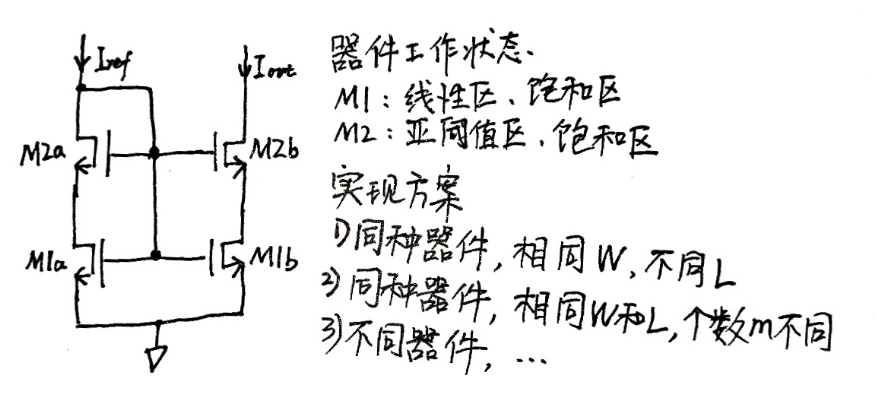 Iref
Iout
M2a
M2b
M1a
M1b
器件工作状态.
M1：线性区、饱和区
M2：亚阈值区、饱和区
实现方案
1)同种器件，相同W，不同L
2)同种器件，相同W和L，个数m不同
3)不同器件，…